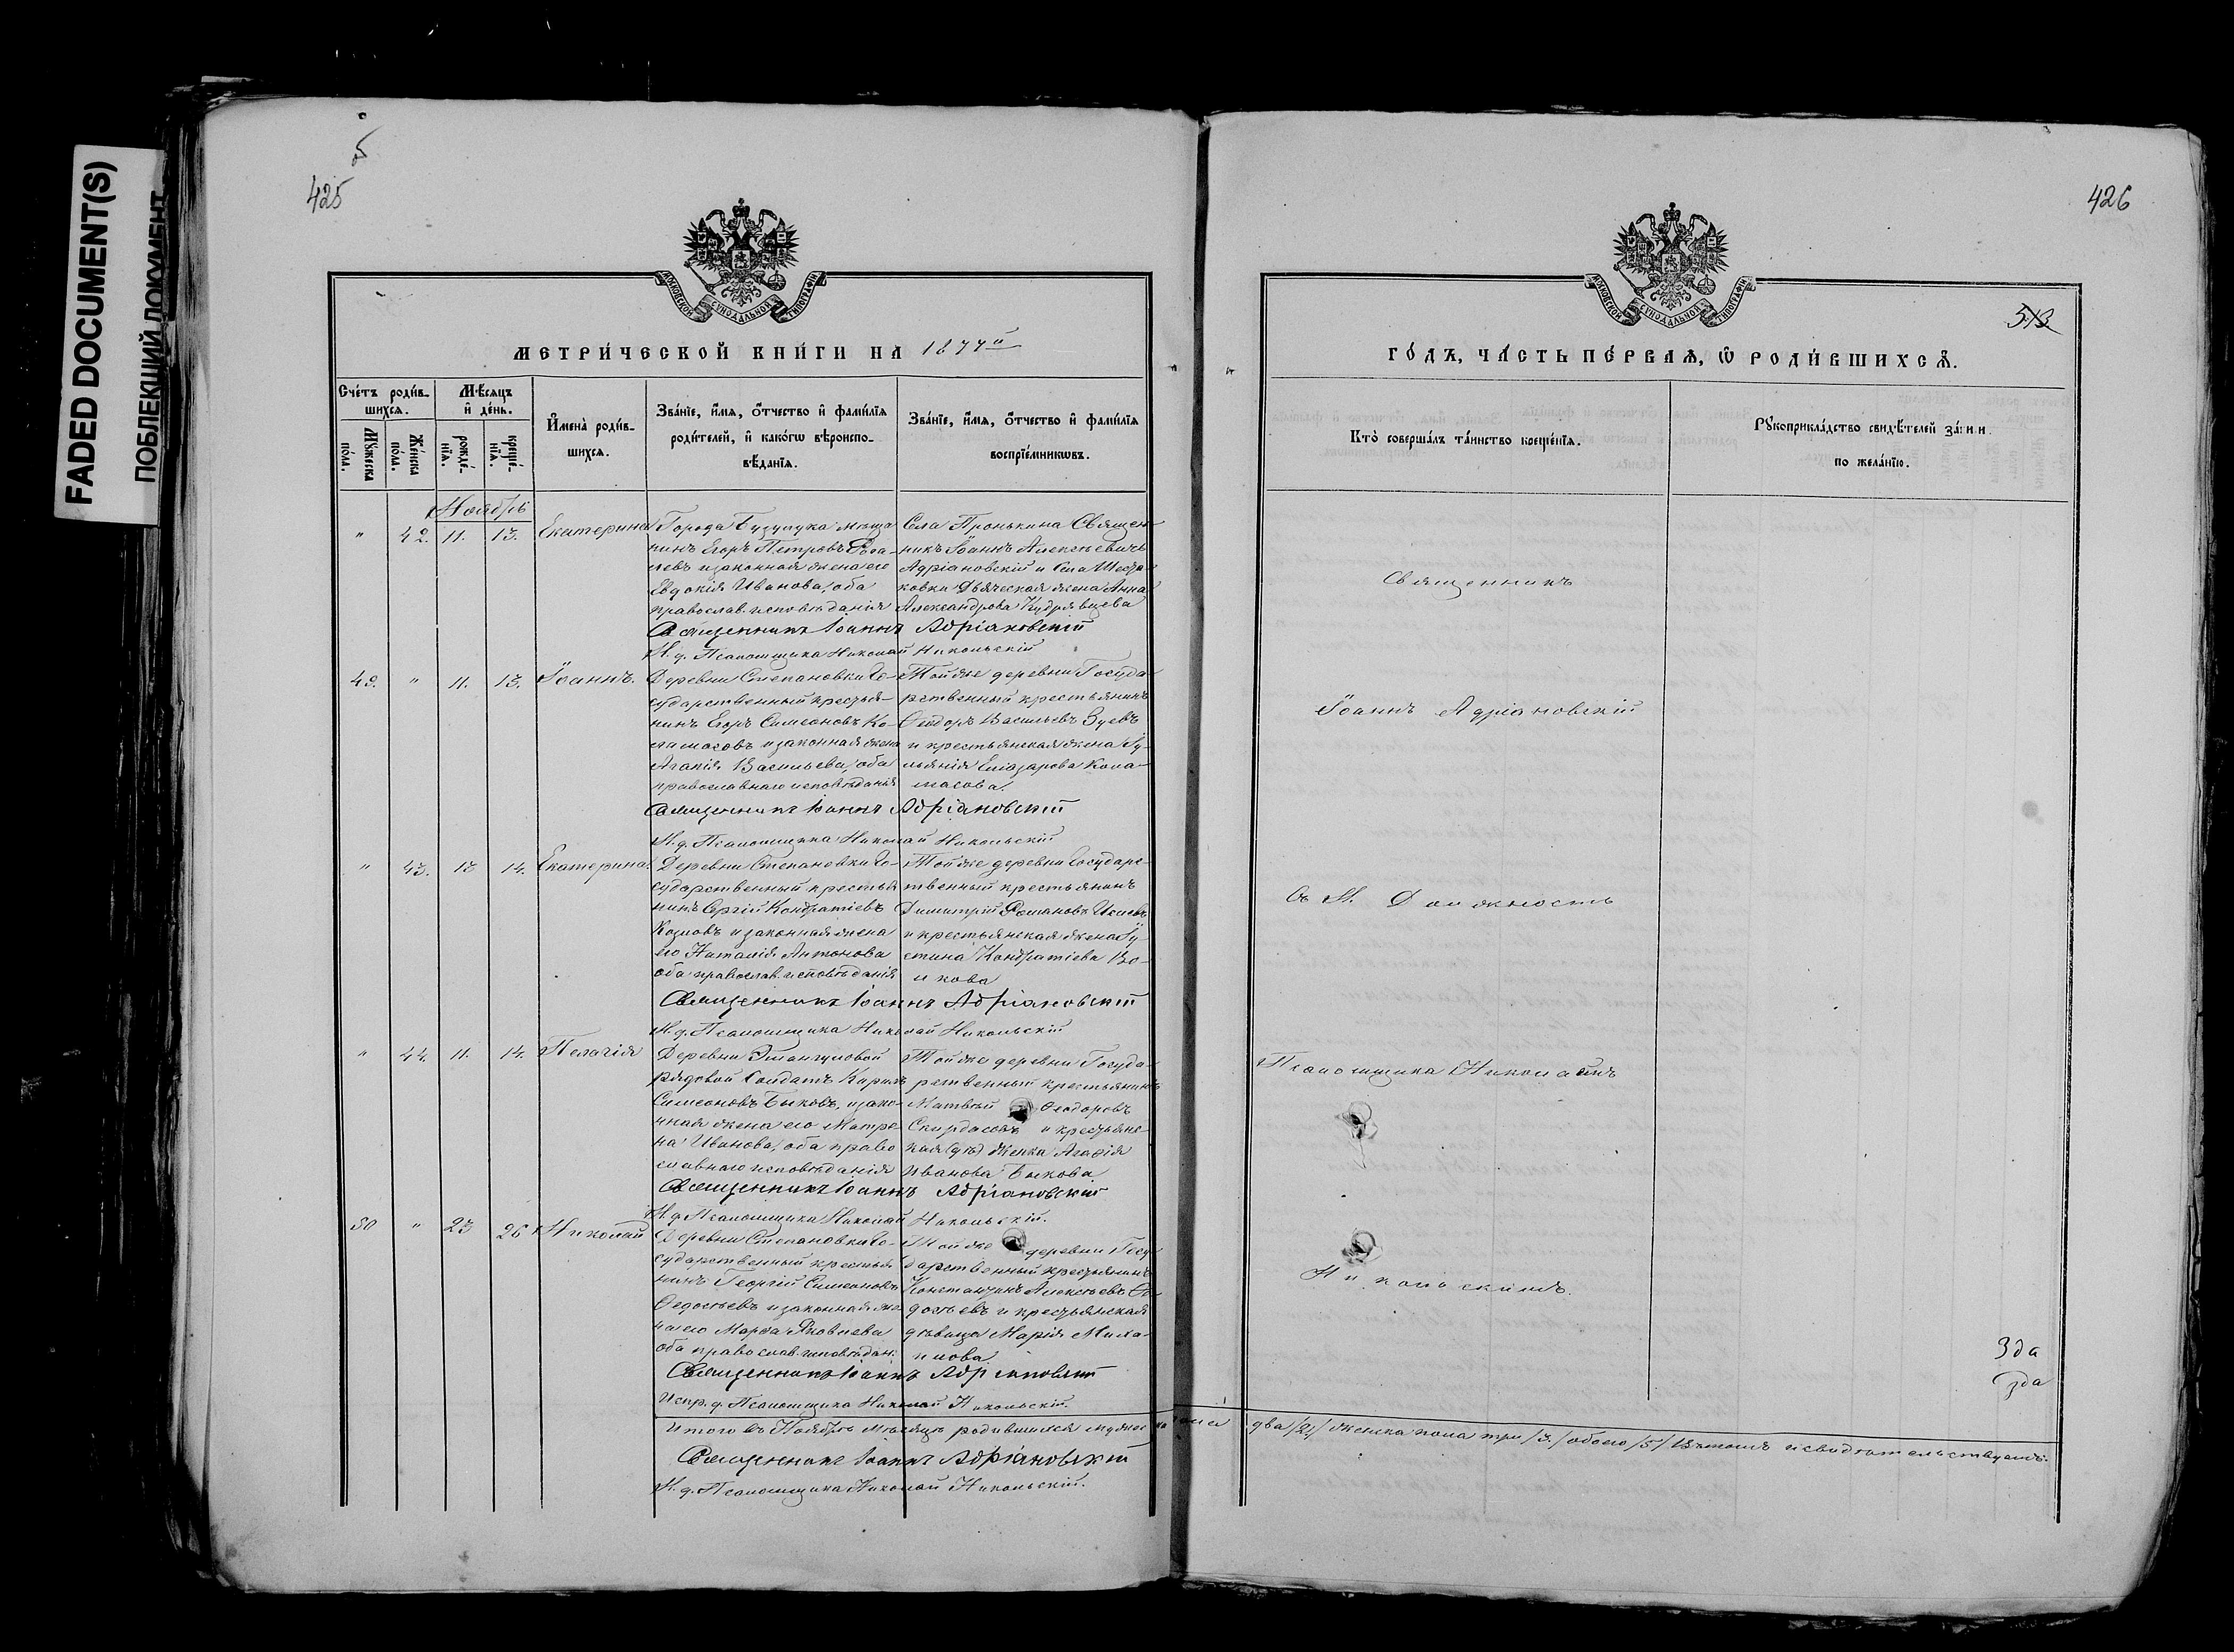 FADED DOCUMENT(S)
ПОБЛЕКШИЙ ДОКУМЕНТ
об
425
МОСКОВСКОЙ СУНОДАЛЬНОЙ ТИПОГРАФІИ
МЕТРИ́ЧЕСКОЙ КНИ́ГИ НА 1877й
Сче́тъ роди́в-
шихся.
Мꙋ́жеска по́ла.
Же́нска по́ла.
Мѣ́сяцъ
и҆ де́нь.
рожде́-
нїѧ.
креще́-
нїѧ.
И҆мена̀ роди́в-
шихся.
Зва́нїе, и҆́мѧ, ѻ҆́тчество и҆ фами́лїѧ
роди́телей, и҆ како́гѡ вѣроиспо-
вѣ́данїѧ.
Зва́нїе, и҆́мѧ, ѻ҆́тчество и҆ фами́лїѧ
воспрїе́мникѡвъ.
Ноябрь
" 42. 11. 13. Екатерина
Города Бузулука меща
нинъ Егоръ Петровъ
и законная жена его
Евдокія Иванова, оба
православ. исповѣданія
Села Пронькина Священ-
никъ Іоаннъ Алексѣевичъ
Адріановскій и села
Дьяческая жена Анна
Александрова Кудрявцева
Священникъ Іоаннъ Адріановскій
И. д. Псаломщика Николай Никольскій
49. " 11. 13. Іоаннъ.
Деревни Степановки Го-
сударственный крестья-
нинъ Егоръ Симеоновъ Ко-
ломасовъ и законная жена
Агапія Васильева, оба
православнаго исповѣданія
Той же деревни Госуда-
рственный крестьянинъ
Ѳеодоръ Васильевъ Зуевъ
и крестьянская жена Іу-
ліанія Елеазарова Кола-
масова.
Священникъ Іоаннъ Адріановскій
И. д. Псаломщика Николай Никольскій
" 43. 13 14. Екатерина.
Деревни Степановки Го-
сударственный крестья
нинъ Сергій Кондратіевъ
Козловъ и законная жена
его Наталія Антонова
оба православ. исповѣданія
Той же деревни Государс-
твенный крестьянинъ
Димитрій Романовъ
и крестьянская жена Іу-
стина Кондратіева Во-
лкова
Священникъ Іоаннъ Адріановскій
И. д. Псаломщика Николай Никольскій
" 44. 11. 14. Пелагія
Деревни
рядовой Солдатъ Кирилъ
Симеоновъ Быковъ, и зако-
нная жена его Матре
на Иванова, оба право
славнаго исповѣданія
Той же деревни Госуда-
рственный крестьянинъ
Матвѣй Ѳеодоровъ
и крестьянс-
кая дѣвка Агафія
Иванова Быкова
Священникъ Іоаннъ Адріановскій
И. д. Псаломщика Николай Никольскій.
50 " 23 26 Николай
Деревни Степановки Го-
сударственный крестья
нинъ Георгій Симеоновъ
Ѳедосѣевъ и законная же-
на его Марѳа Яковлева
оба православ. исповѣдан.
Той же деревни Госу-
дарственный крестьянинъ
Константинъ Алексѣевъ Ѳе-
досѣевъ и крестьянская
дѣвица Марія Миха-
илова
Священникъ Іоаннъ Адріановскій
Испр. д. Псаломщика Николай Никольскій.
Итого въ Ноябрѣ мѣсяцѣ родившихся мужеска пола два /2/ женска пола три /3/ обоего /5/ въ томъ и свидѣтельствуемъ.
Священникъ Іоаннъ Адріановскій
И. д. Псаломщика Николай Никольскій.
426
МОСКОВСКОЙ СУНОДАЛЬНОЙ ТИПОГРАФІИ
513.
ГО́ДЪ, ЧА́СТЬ ПЕ́РВАѦ, Ѡ҆ РОДИ́ВШИХСѦ.
Кто̀ соверша́лъ та́инство креще́нїѧ.
Рꙋкоприкла́дство свидѣ́телей за́пи
по жела́нїю.
Священникъ
Іоаннъ Адріановскій
съ И. Должность
Псаломщика Николаемъ
Никольскимъ.
3 да
3 да